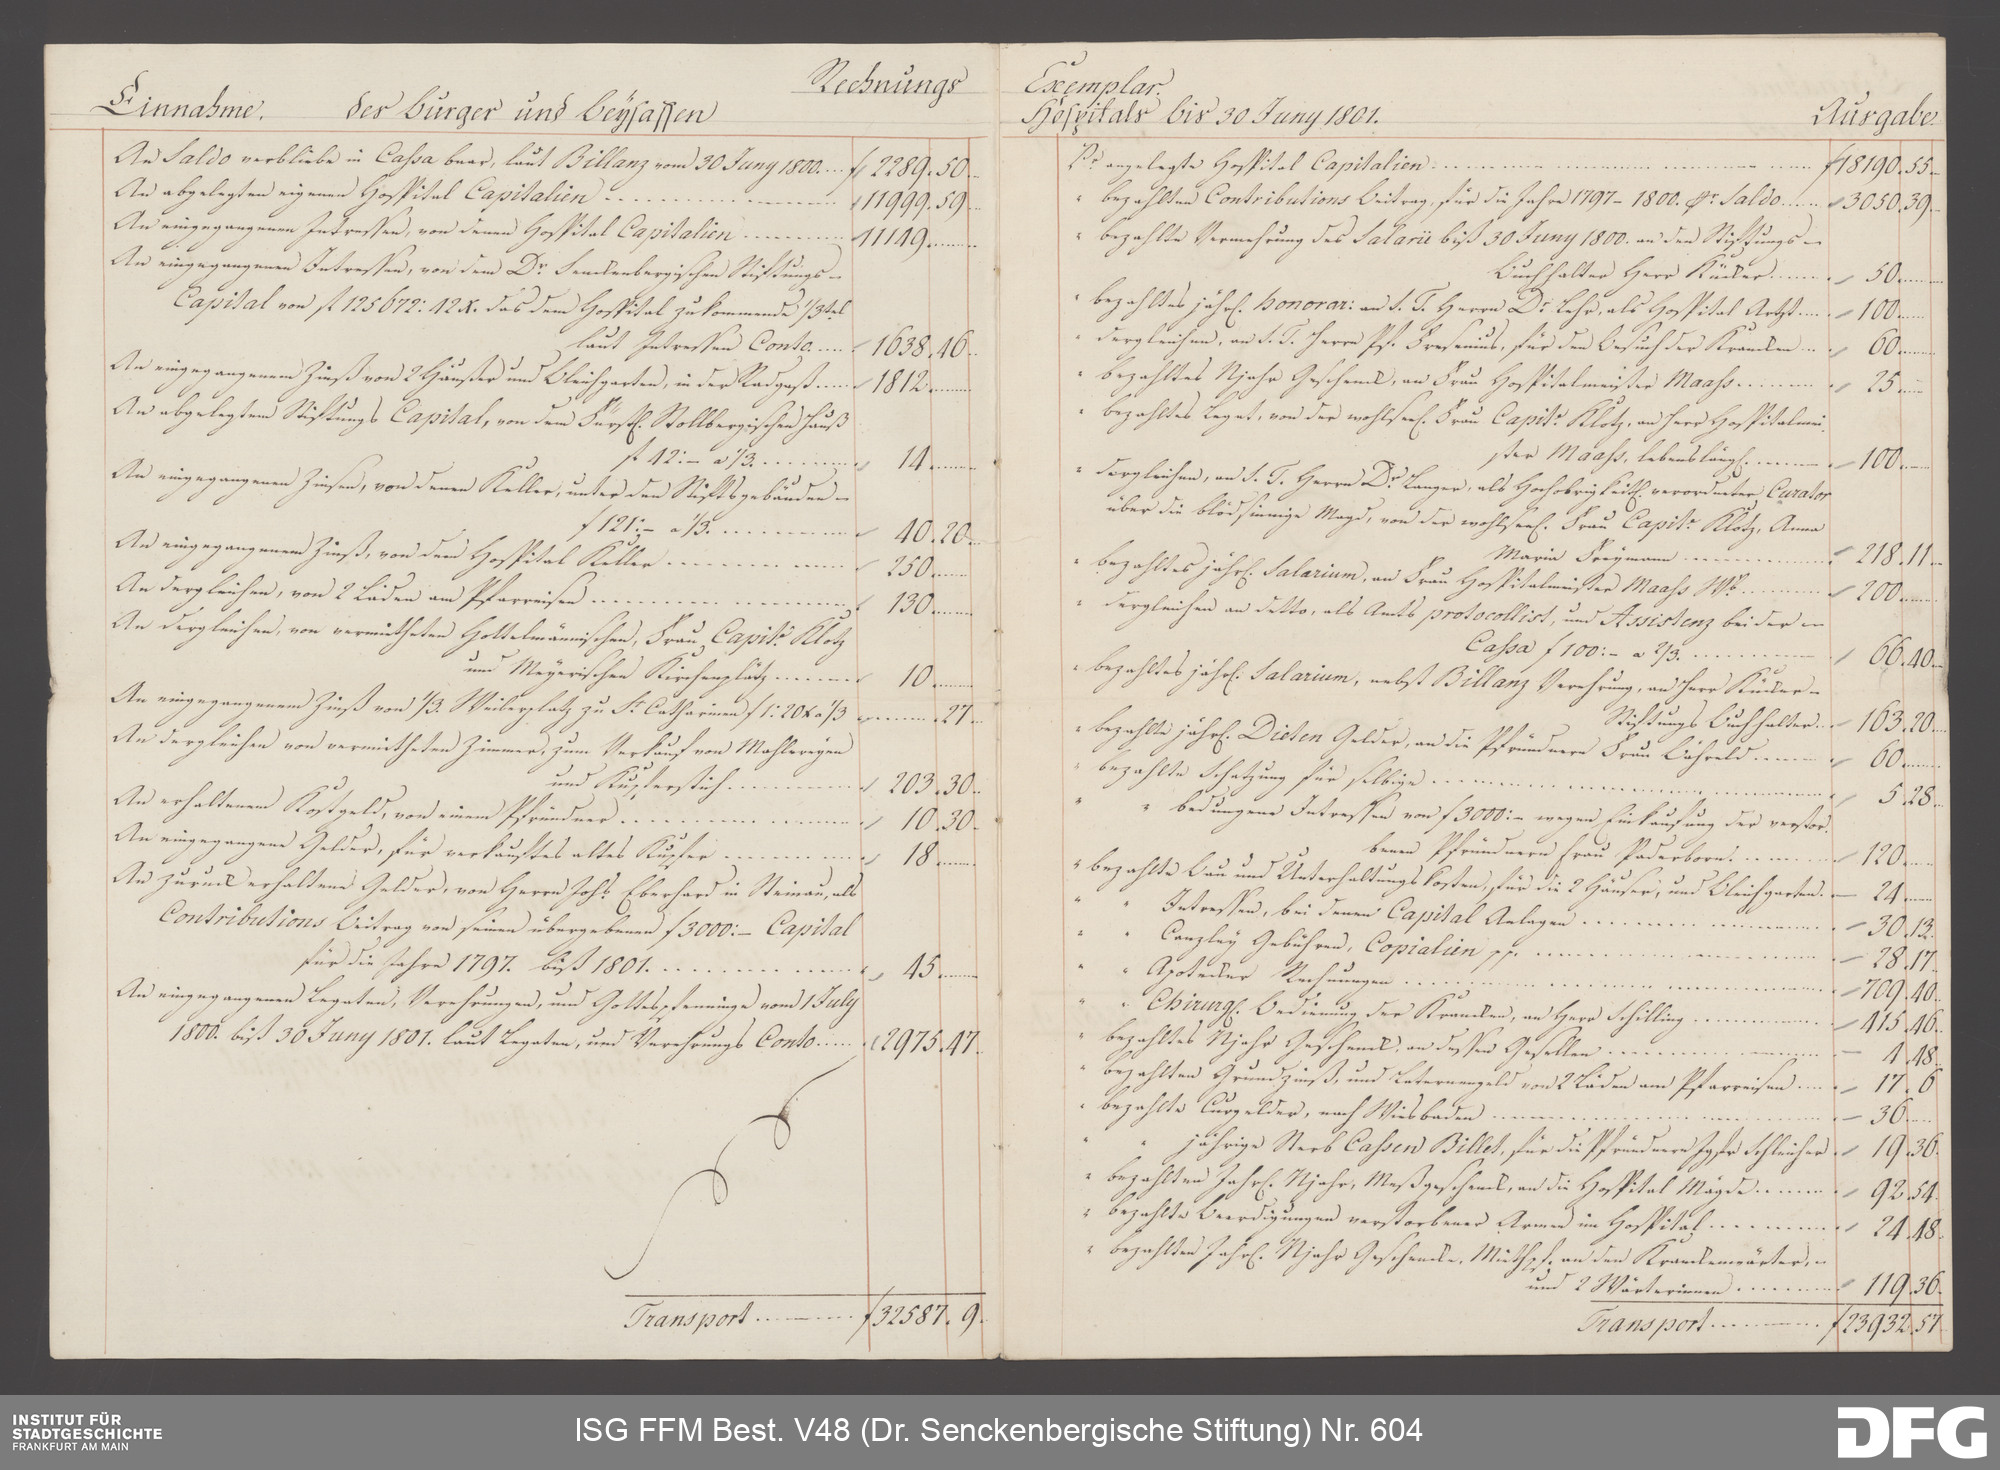 Rechnungs
Einnahme. des burger und beysassen
An Saldo verbliebe in Cassa baar, laut Billanz vom 30 Juny 1800. f 2289.50
An abgelegten eigenen Hospital Capitalien 11999.59
An eingegangenen Intressen, von denen Hospital Capitalien 11149.
An eingegangenen Intressen, von dem Dr. Senckenbergischen Stiftungs-
Capital von f 125672: 12 x. das dem Hospital zukommende 1/3tel
laut Intressen Conto 1638.46
An eingegangenem Zinß von 2 Häußer und Bleichgarten, in der Radgaß 1812.
An abgelegtem Stiftungs Capital, von dem Fürstl. Stollbergischen Hauß
f 42:- a 1/3. 14.
An eingegangenen Zinsen, von denen Keller, unter den Stiftsgebäuden-
f 121:- a 1/3. 40.20
An eingegangenem Zinß, von dem Hospital Keller 250.
An dergleichen, von 2 Läden am Pfarreisen 130.
An dergleichen, von vermietheten Hottelmännischen, Frau Capit: Klotz
und Meyerischen Kirchenplätz 10.
An eingegangenem Zinß von 1/3. Weiberplatz zu St. Catharinen f 1:20 x a 1/3 .27
An dergleichen von vermietheten Zimmer, zum Verkauf von Mahlereyen
und Kupferstich 203.30
An erhaltenem Kostgeld, von einem Pfründner 10.30
An eingegangene Gelder, für verkauftes altes Kupfer 18.
An zurück erhaltene Gelder, von Herrn Johs. Eberhard in Steinau, als
Contributions beitrag von seinen übergebenen f 3000:- Capital
für die Jahre 1797. biß 1801. 45.
An eingegangenen Legaten, Verehrungen, und Gottespfenninge vom 1 July
1800. biß 30 Juny 1801. laut Legaten, und Verehrungs Conto 2975.47
Transport f 32587.9.
Exemplar.
Hospitals bis 30 Juny 1801. Ausgabe.
Pr. angelegte Hospital Capitalien f 18190.55
" bezahlten Contributions Beitrag, für die Jahre 1797-1800. pr. Saldo 3050.39
" bezahlte Vermehrung des Salarii biß 30 Juny 1800. an den Stiftungs-
Buchhalter Herr Küster 50.
" bezahltes jährl. honorar: an S. T. Herrn Dr. Lehr, als Hospital Artzt 100.
" dergleichen, an S. T. Herrn Pf. Fresenius, für den Besuch der Krancken 60.
" bezahltes Njahr Geschenck, an Frau Hospitalmeister Maass 25.
" bezahltes Legat, von der wohlseel. Frau Capit: Klotz, an Herr Hospitalmei-
ster Maass, lebenslängl. 100.
" dergleichen, an S. T. Herrn Dr. Langer, als Hochobrigkeitl. verordneter Curator
über die blödsinnige Magd, von der wohlseel. Frau Capit: Klotz, Anna
Maria Freymann 218.11
" bezahltes jährl. Salarium, an Frau Hospitalmeister Maass Wb. 200.
" dergleichen an detto, als Amts protocollist, und Assistenz bei der-
Cassa f 100:- a 2/3. 66.40
" bezahltes jährl. Salarium, nebst Billanz Verehrung, an Herr Küster-
Stiftungs Buchhalter 163.20
" bezahlte jährl. Dieten Gelder, an die Pfründnern Frau 60.
" bezahlte Schatzung für selbige 5.28
" " bedungene Intressen von f 3000:- wegen Einkaufung der verstor-
benen Pfründnern Frau Paderborn 120.
" bezahlte Bau und Unterhaltungskosten, für die 2 Häuser, und Bleichgarten. 24.
" " Intressen, bei denen Capital Anlagen 30.13.
" " Canzley Gebühren, Copialien pp. 28.17
" " Apotecker Rechnungen 709.40
" " Chirurgl. bedienung der Krancken, an Herr Schilling 415.46
" bezahltes Njahr Geschenck, an dessen Gesellen 4.48
" bezahlten Grundzinß, und Laternengeld von 2 Läden am Pfarreisen 17.6
" bezahlte Curgelder, nach Wiesbaden 36.
" " jährige Sterb Cassen Billet, für die Pfründnern Jgfr Schleicher 19.36
" bezahlten Jahrl. Njahr, Meßgeschenck, an die Hospital Mägde 92.54
" bezahlte Beerdigungen verstorbener Armen im Hospital 24.48
" bezahlten Jahrl. Njahr Geschenck, Miethpf. an den Kranckenwärter,-
und 2 Wärterinnen 119.36
Transport f 23932.57
INSTITUT FÜR
STADTGESCHICHTE
FRANKFURT AM MAIN
ISG FFM Best. V48 (Dr. Senckenbergische Stiftung) Nr. 604
DFG